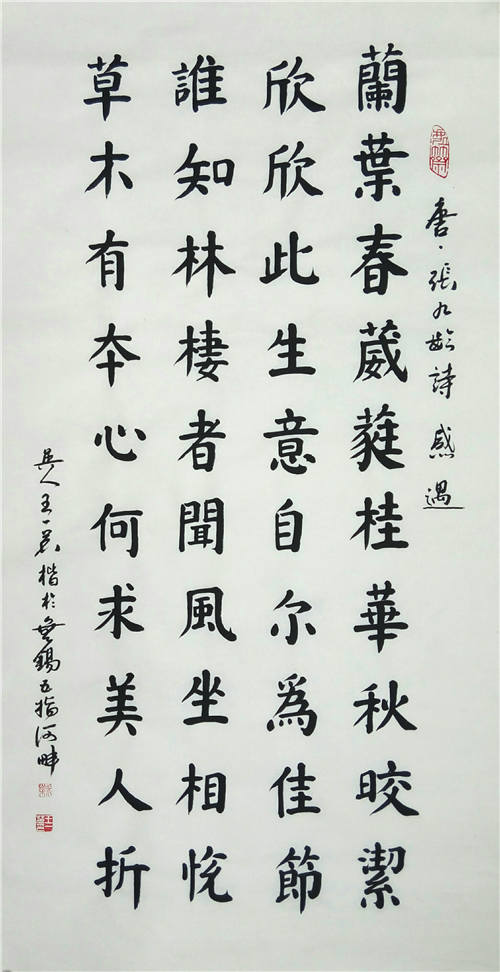 唐·張九齡詩 感遇
蘭葉春葳蕤桂華秋皎潔
欣欣此生意自尔為佳節
誰知林棲者聞風坐相悅
草木有本心何求美人折
吳人王一君楷於無錫五指河畔